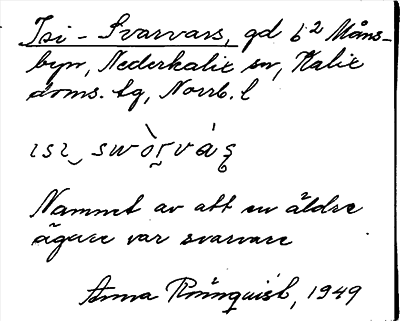 Isi-Svarvars, gd 6² Måns-
byn, Nederkalix sn, Kalix
doms. tg, Norrb. l
ısı‿ swòrvás
Namnet av att en äldre
ägare var svarvare
Anna Rönnquist, 1949